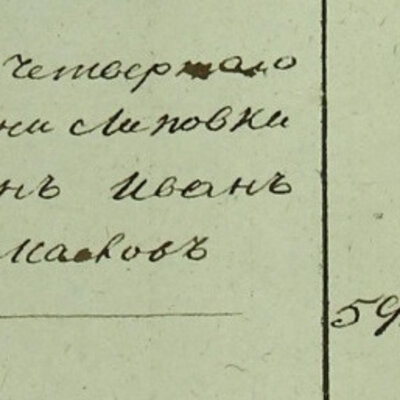 Четвертаго
ни Липовки
нъ Иванъ
59